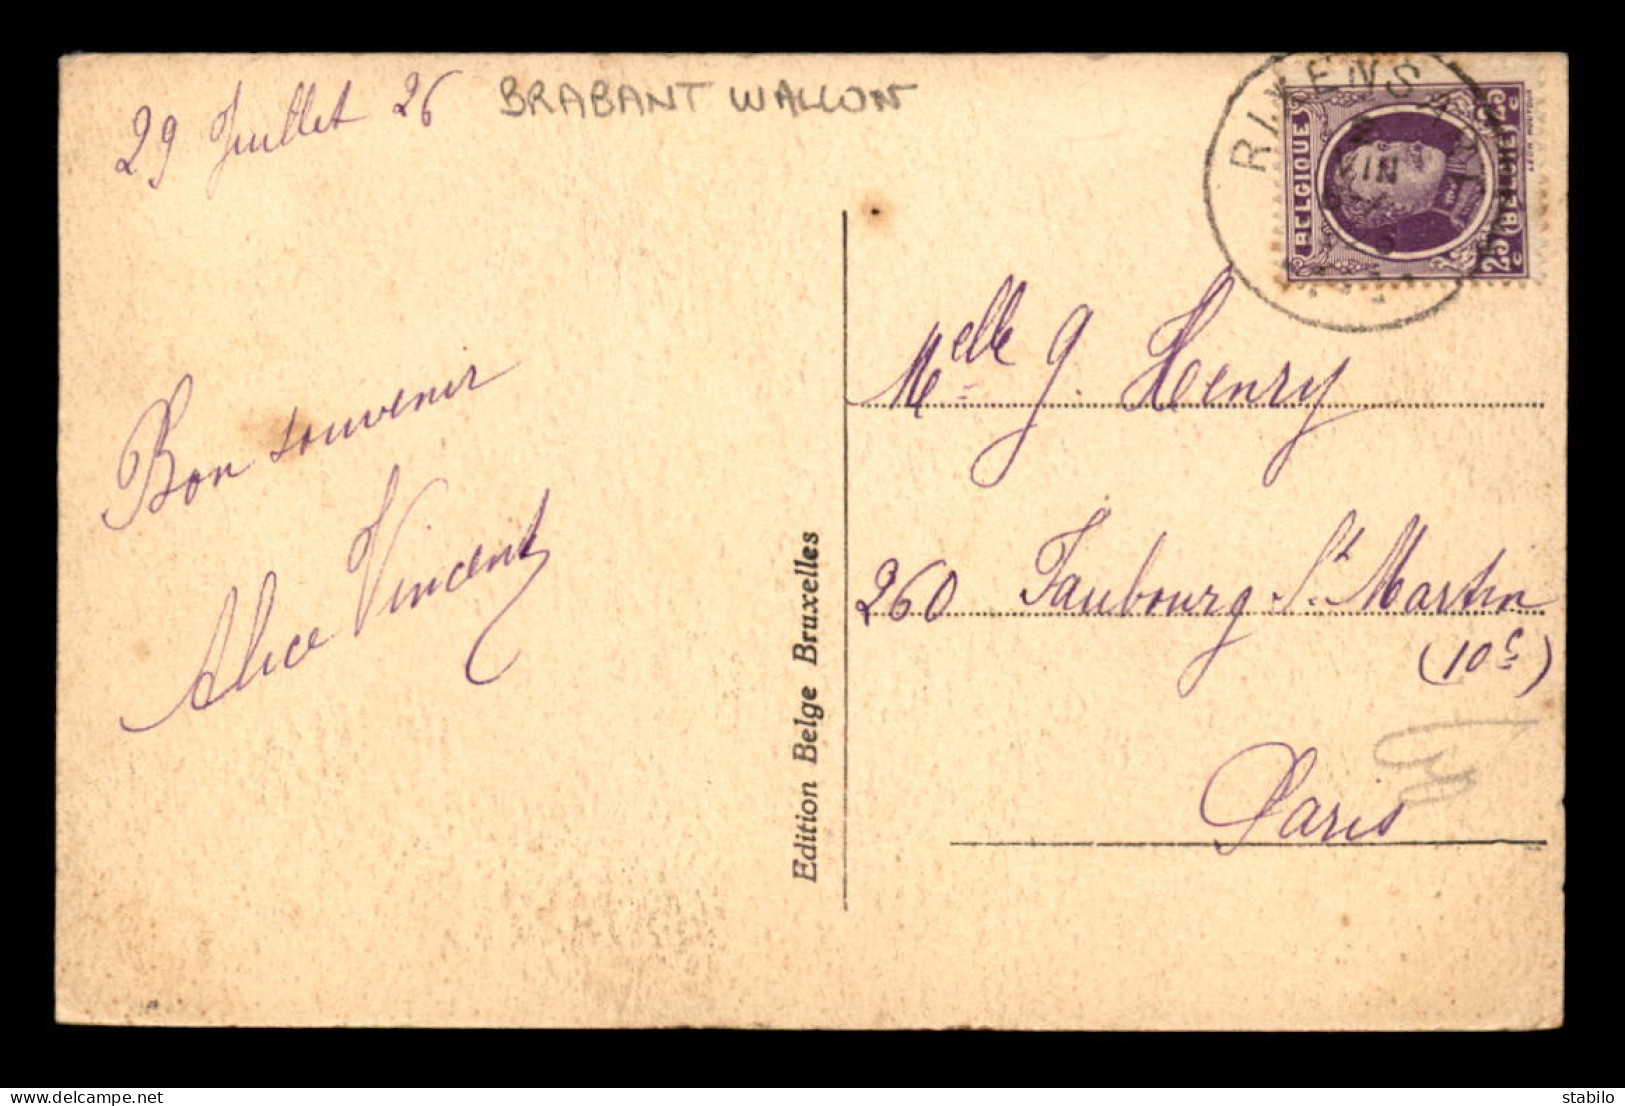 29 Juillet 26
BRABANT WALLON
RIXENSART
BELGIQUE
25 c
BELGIE
25 c
Bon souvenir
Alice Vincent
Edition Belge Bruxelles
Melle G. Henry
260 Faubourg St. Martin
(10c)
Paris
delcampe.net
stabilo